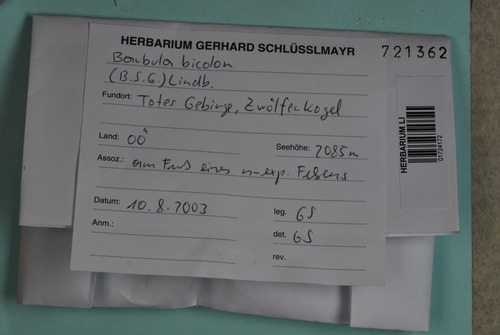 HERBARIUM GERHARD SCHLÜSSLMAYR
721362
Barbula bicolor
(B.S.G.) Lindb.
Fundort: Totes Gebirge, Zwölferkogel
Land: OÖ Seehöhe: 2085m
Assoz.: am Fuß eines n-exp. Felsens
Datum: 10.8.2003 leg. GS
Anm.: det. GS
rev.
HERBARIUM LI
01724172